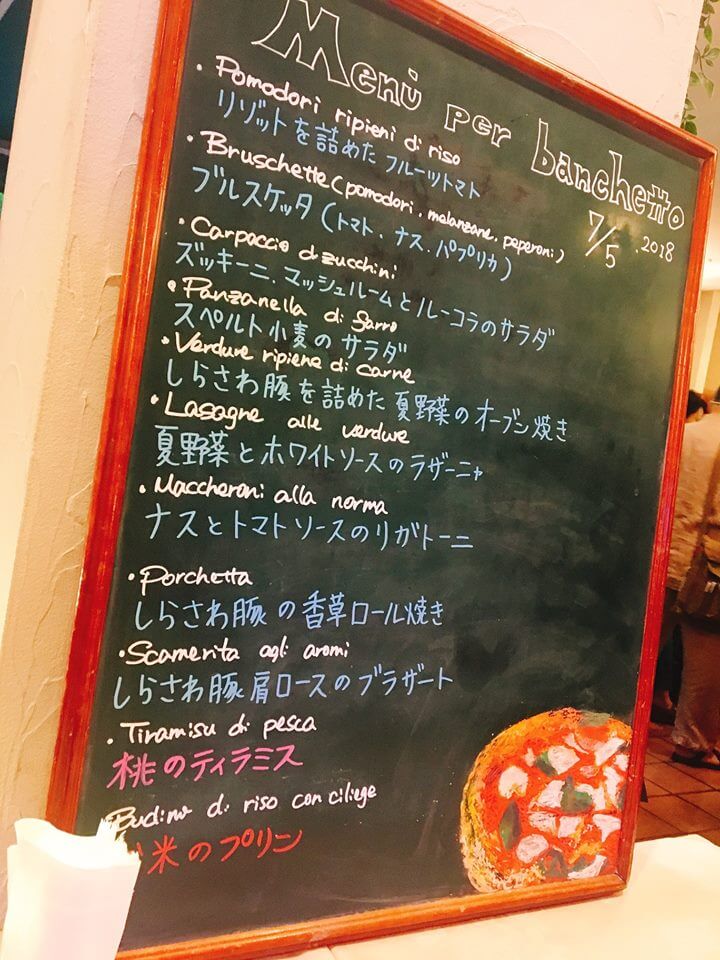 Menù per banchetto
7/5 .2018
・Pomodori ripieni di riso
リゾットを詰めた フルーツトマト
・Bruschette (pomodori, melanzane, peperoni)
ブルスケッタ (トマト、ナス、パプリカ)
・Carpaccio di zucchini
ズッキーニ、マッシュルームとルーコラのサラダ
・Panzanella di Sarro
スペルト小麦のサラダ
・Verdure ripiene di carne
しらさわ豚を詰めた 夏野菜のオーブン焼き
・Lasagne alle verdure
夏野菜とホワイトソースのラザーニャ
・Maccheroni alla norma
ナスとトマトソースのリガトーニ
・Porchetta
しらさわ豚の香草ロール焼き
・Scamerita agli aromi
しらさわ豚肩ロースのブラザート
・Tiramisu di pesca
桃のティラミス
Budino di riso con ciliege
米のプリン